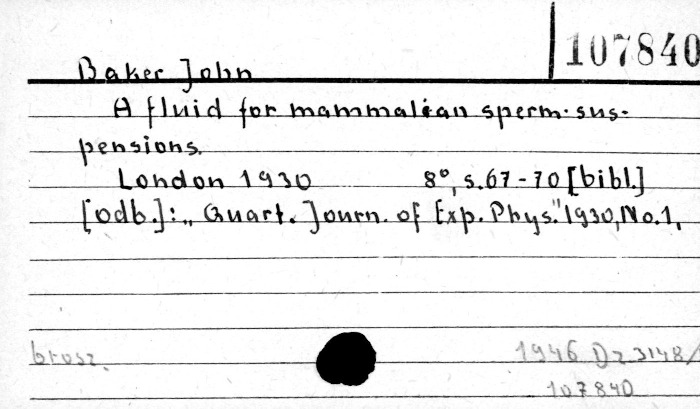 107840
Baker John
A fluid for mammalian sperm-sus-
pensions.
London 1930 8°, s. 67-70 [bibl.]
[odb.]: „Quart. Journ. of Exp. Phys." 1930, No. 1,
brosz.
1946 Dz 3148/
107840